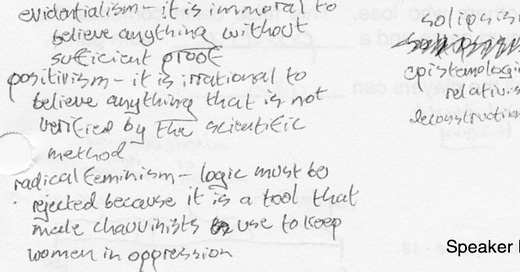 evidentialism - it is immoral to
believe anything without
sufficient proof
positivism - it is irrational to
believe anything that is not
verified by the scientific
method
radical feminism - logic must be
rejected because it is a tool that
male chauvinists use to keep
women in oppression
solipsis
epistemologic
relativis
deconstruction
Speaker